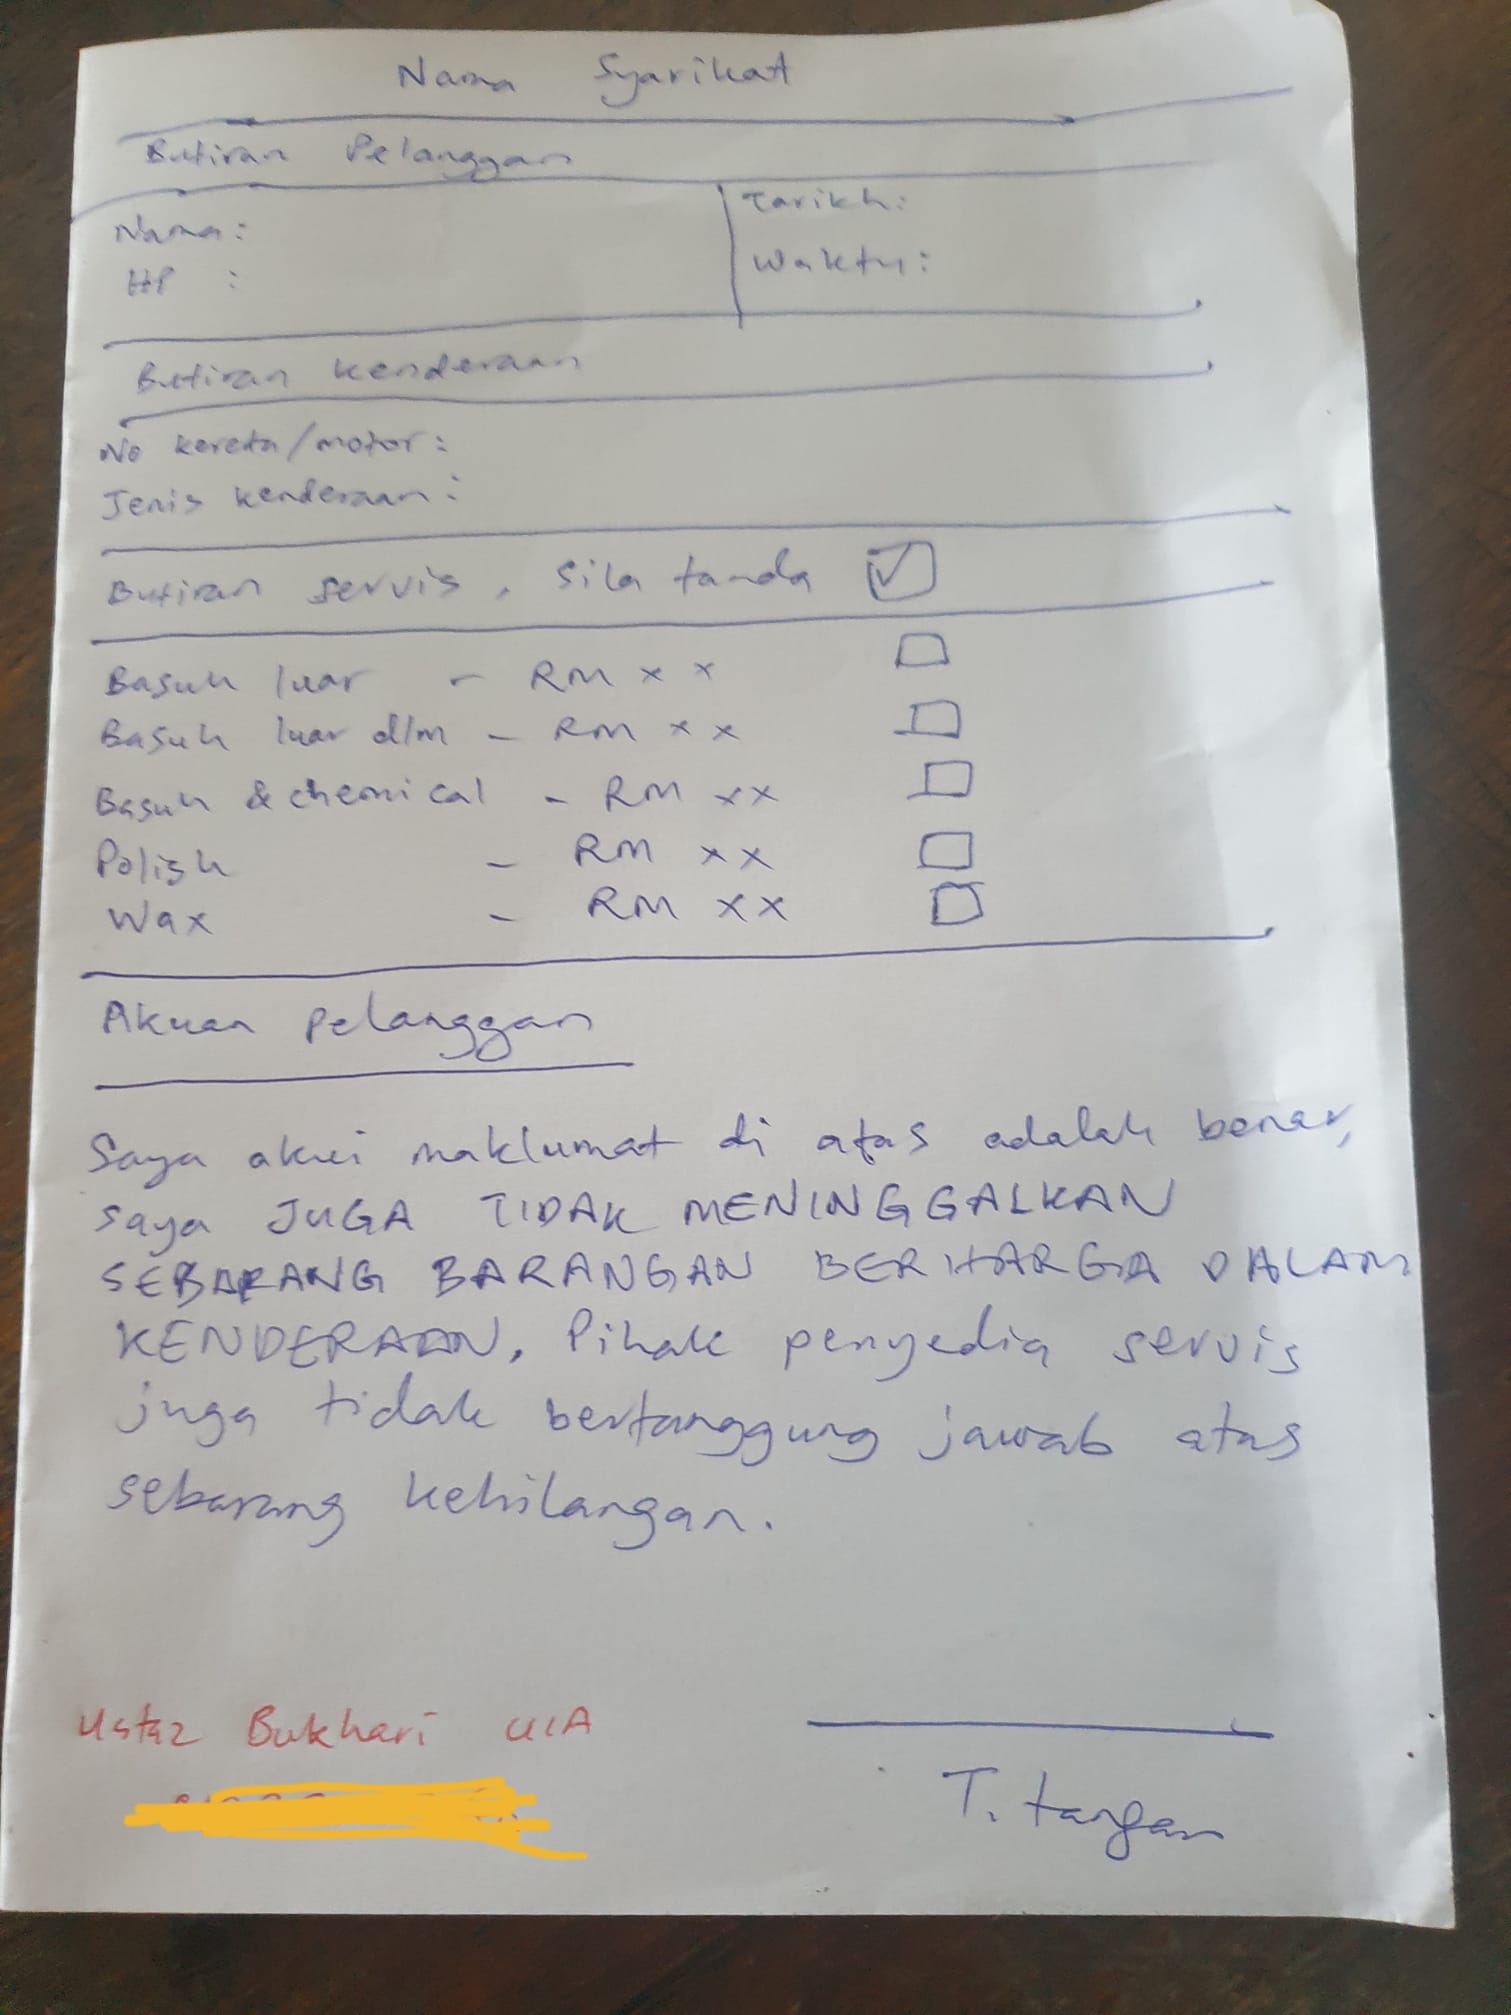 Nama Syarikat
Butiran Pelanggan
Nama:
Tarikh:
HP :
Waktu:
Butiran kenderaan
No kereta/motor:
Jenis kenderaan:
Butiran servis, Sila tanda ☑
Basuh luar - RM x x ☐
Basuh luar d/m - RM x x ☐
Basuh & chemical - RM xx ☐
Polish - RM xx ☐
Wax - RM xx ☐
Akuan pelanggan
Saya akui maklumat di atas adalah benar,
saya JUGA TIDAK MENINGGALKAN
SEBARANG BARANGAN BERHARGA DALAM
KENDERAAN. Pihak penyedia servis
juga tidak bertanggung jawab atas
sebarang kehilangan.
Ustaz Bukhari UIA
T. tangan